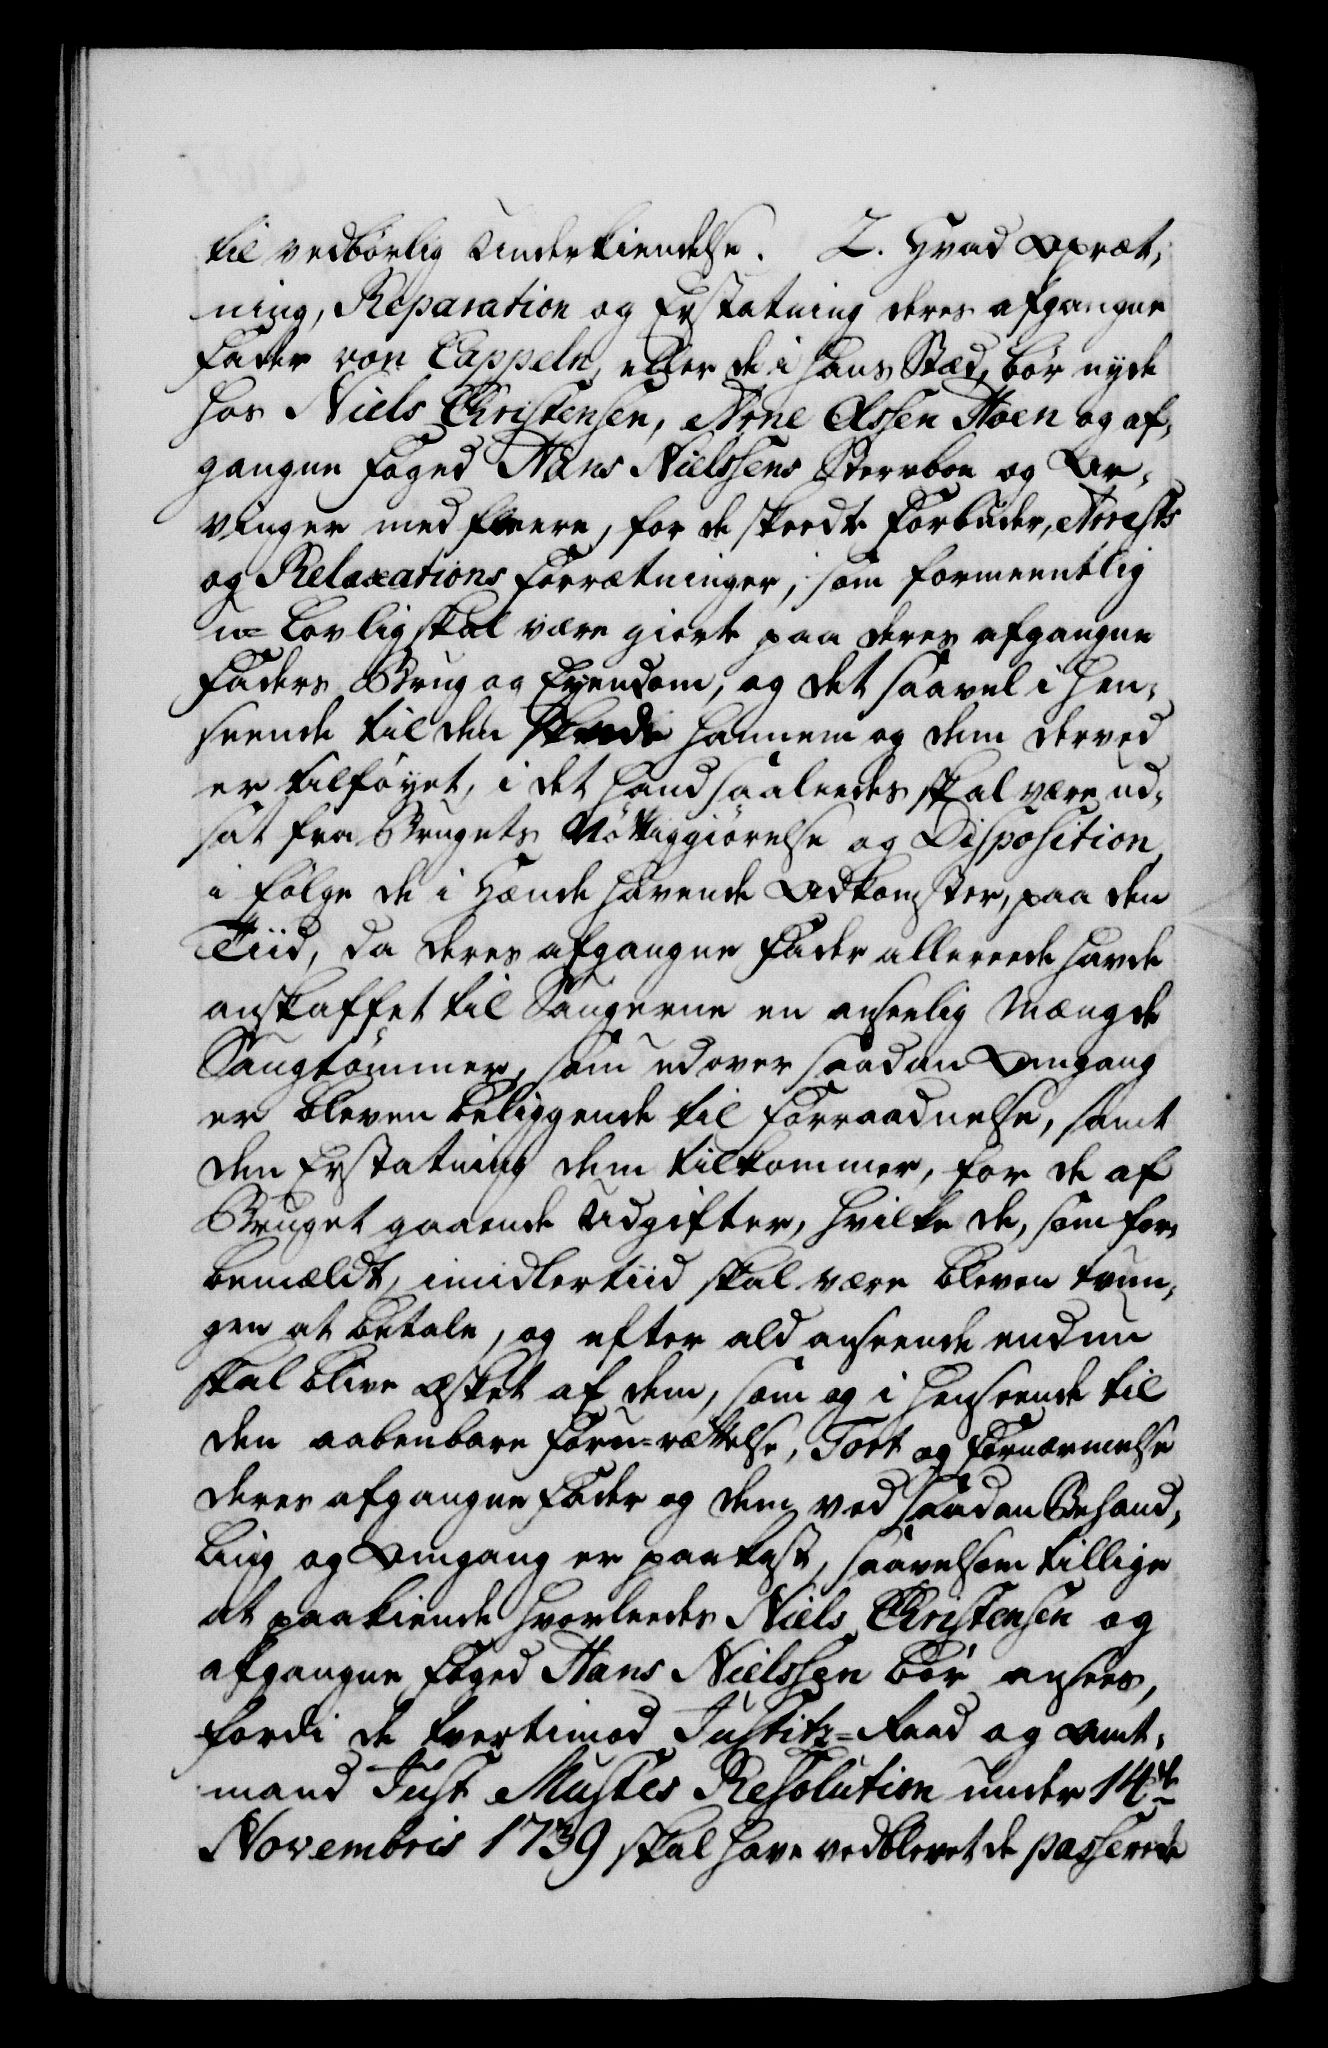 til vedbørlig Underkiendelse. 2. Hvad Opræt,
ning, Reparation og Erstatning deres afgangne
Fader von Cappeln, eller de i hans Stæd, bør nyde
hos Niels Christensen, Arne Olssen Hoen og af,
gangne Foged Hans Nielssens Sterrboe og Ar,
vinger med fleere, for de skeedte Forbuder, Arrests
og Relaxations Forrætninger, som formeentlig
u=Lovlig skal være giorte paa deres afgangne
Faders Brug og Eyendom, og det saavel i Hen,
seende til den Skade hannem og dem derved
er tilføyet, i det hand saaleedes skal være ud,
sat fra Brugets Nøttiggiørelse og Disposition,
i følge de i Hænde havende Adkomster, paa den
Tiid, da deres afgangne Fader allereede havde
anskaffet til Saugerne en anseelig Mængde
Saugtømmer, som udover saadan Omgang
er bleven beliggende til Forraadnelse, samt
den Erstatning dem tilkommer, for de af
Bruget gaaende Udgifter, hvilke de, som for,
bemældt, imidlertiid skal være bleven tvun,
gen at betale, og efter ald anseende endnu
skal blive æsket af dem, som og i henseende til
den aabenbare Foru=rættelse, Tort og Fornærmelse
deres afgangne Fader og dem ved saadan Behand,
ling og Omgang er paakast, saavelsom tillige
at paakiende hvorleedes Niels Christensen og
afgangne Foged Hans Nielssen bør ansees,
fordi de tvertimod Justitz=Raad og Amt,
mand Just Mustes Resolution under 14de
Novembris 1739 skal have vedblevet de passerede